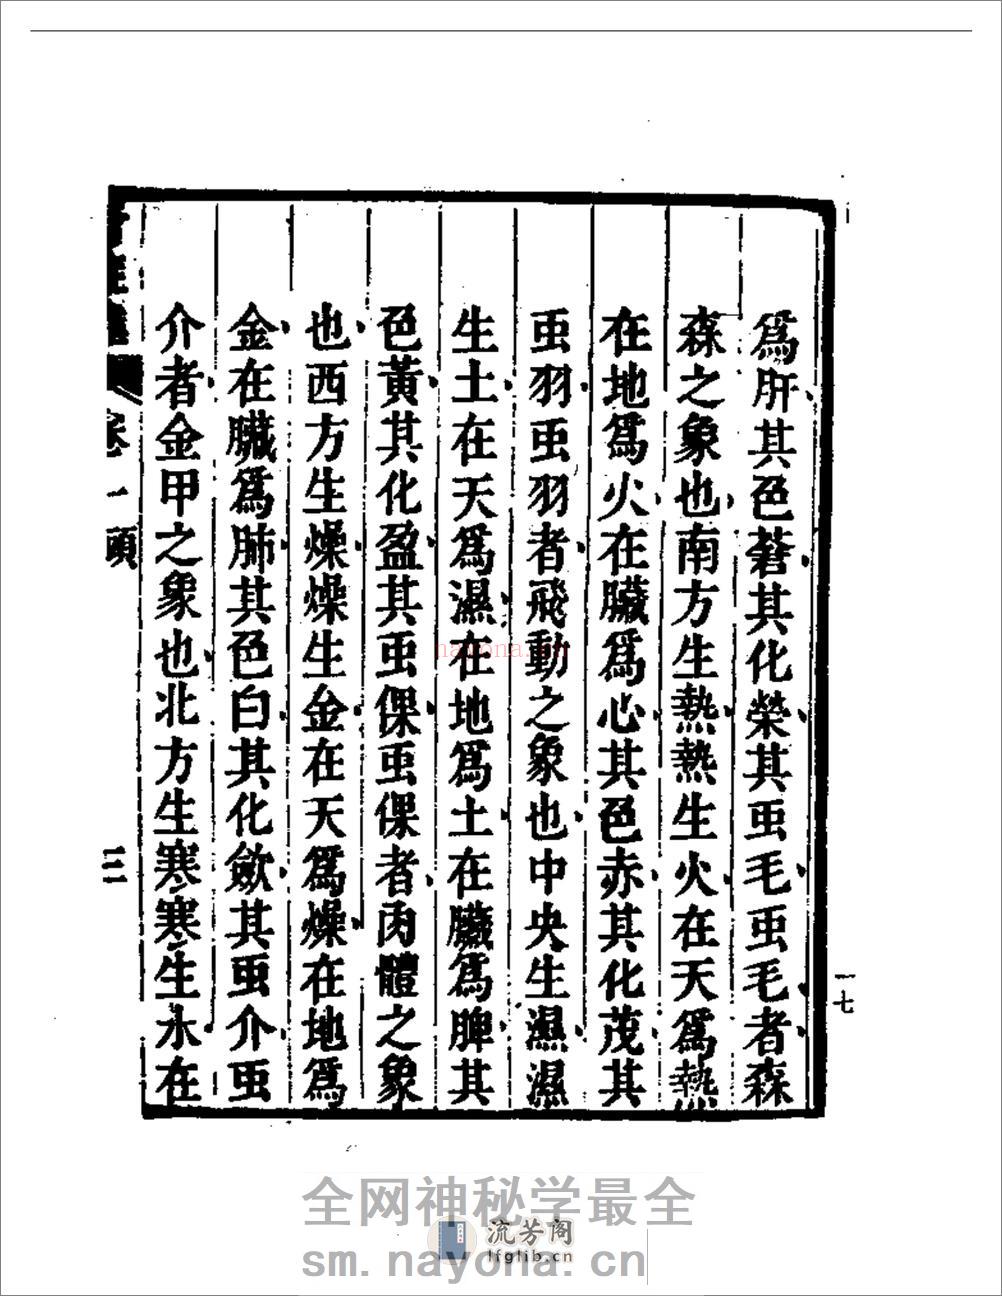 爲肝其色蒼其化榮其虫毛虫毛者森
森之象也南方生熱熱生火在天爲熱
在地爲火在臟爲心其色赤其化茂其
虫羽虫羽者飛動之象也中央生濕濕
生土在天爲濕在地爲土在臟爲脾其
色黃其化盈其虫倮虫倮者肉體之象
也西方生燥燥生金在天爲燥在地爲
金在臟爲肺其色白其化斂其虫介虫
介者金甲之象也北方生寒寒生水在
卷一頭
一七
nayona.cn
全网神秘学最全
流芳阁
lfglib.cn
sm.nayona.cn